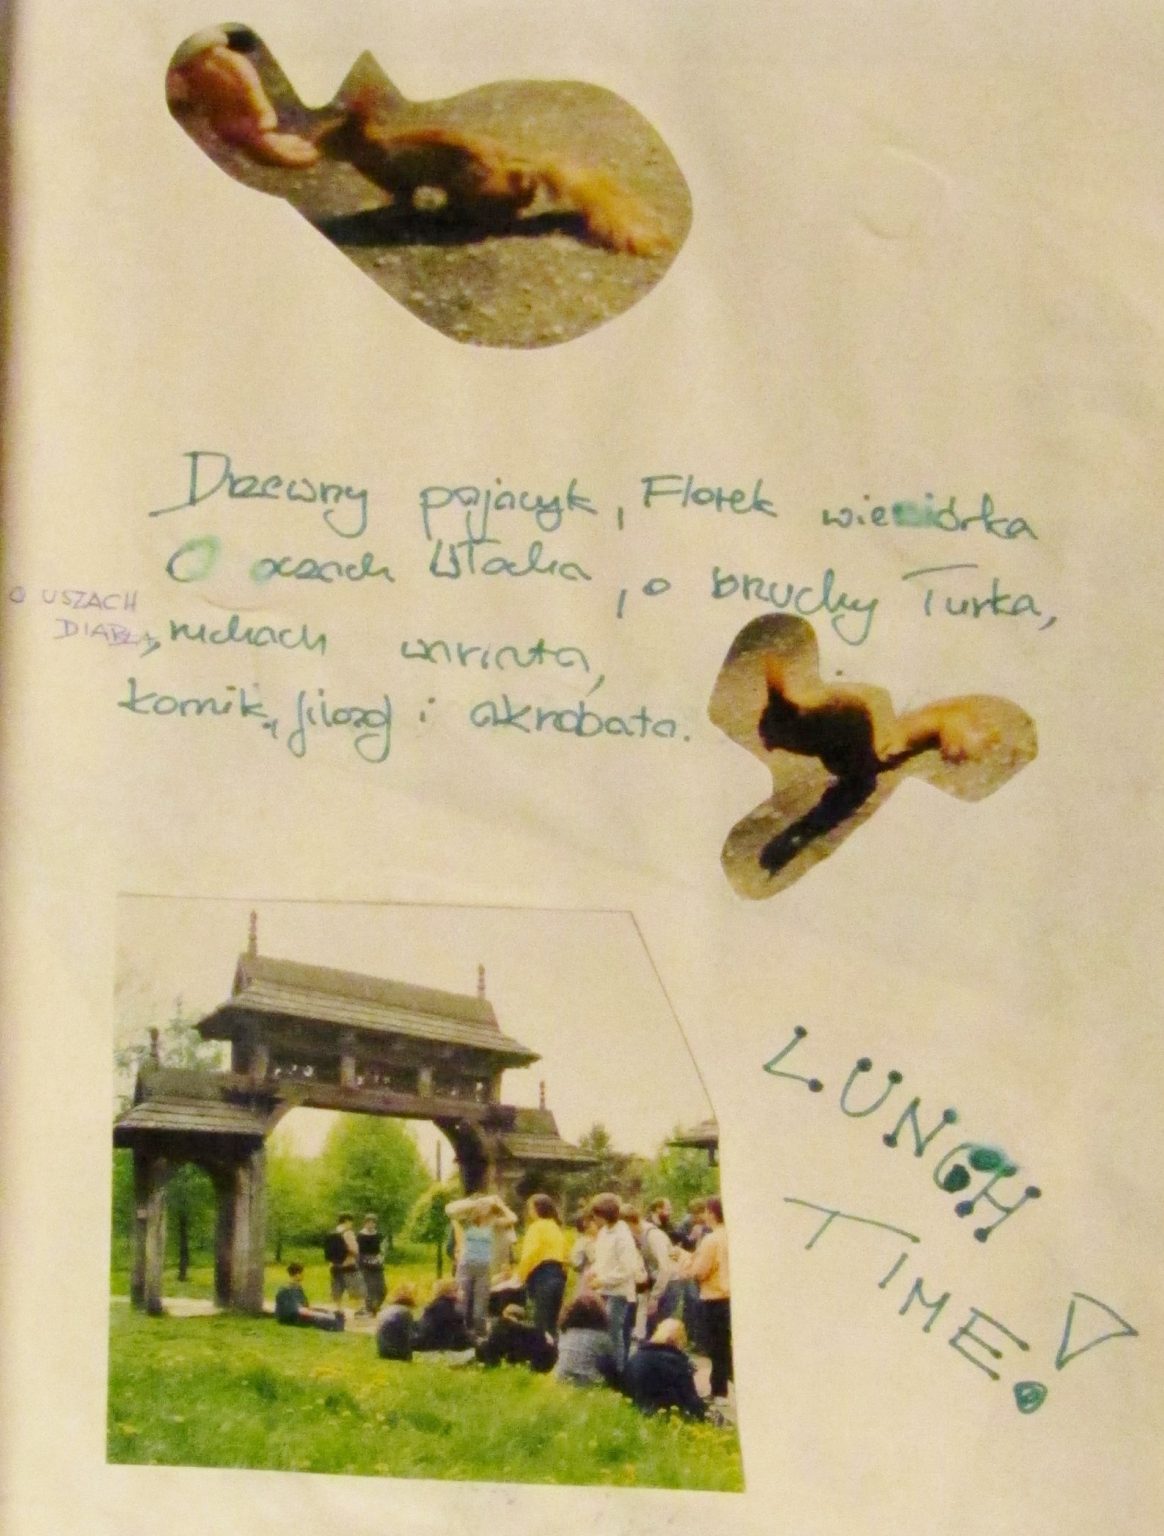 Drzewny pajacyk, Florek wiewiórka
O oczach Włocha, o brzuchu Turka,
O USZACH
DIABŁA,
ruchach wariata,
komik, filozof i akrobata.
LUNCH
TIME!